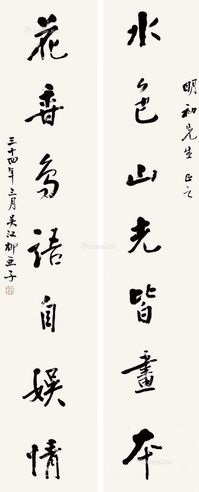 明初先生正之
水色山光皆畫本
花香鳥語自娛情
三十四年三月吴江柳亞子